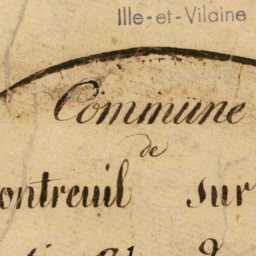 Ille-et-Vilaine
Commune
de
ontreuil sur